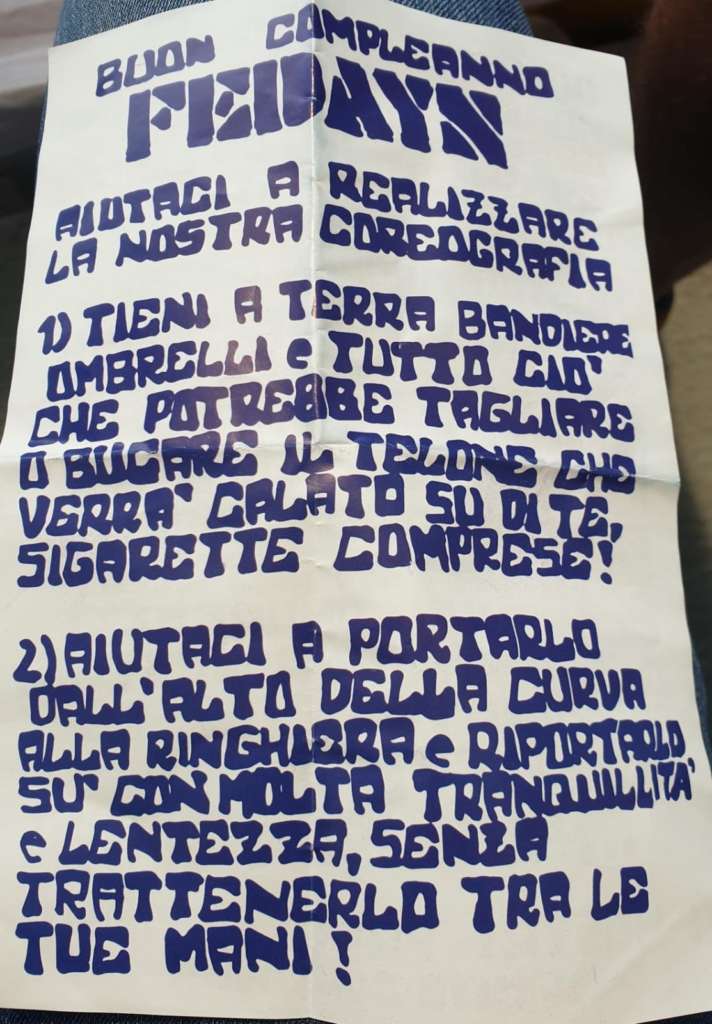 BUON COMPLEANNO
FEDAYN
AIUTACI A REALIZZARE
LA NOSTRA COREOGRAFIA
1) TIENI A TERRA BANDIERE
OMBRELLI e TUTTO CIO'
CHE POTREBBE TAGLIARE
O BUCARE IL TELONE CHE
VERRA' CALATO SU DI TE,
SIGARETTE COMPRESE!
2) AIUTACI A PORTARLO
DALL'ALTO DELLA CURVA
ALLA RINGHIERA e RIPORTARLO
SU' CON MOLTA TRANQUILLITA'
e LENTEZZA, SENZA
TRATTENERLO TRA LE
TUE MANI!